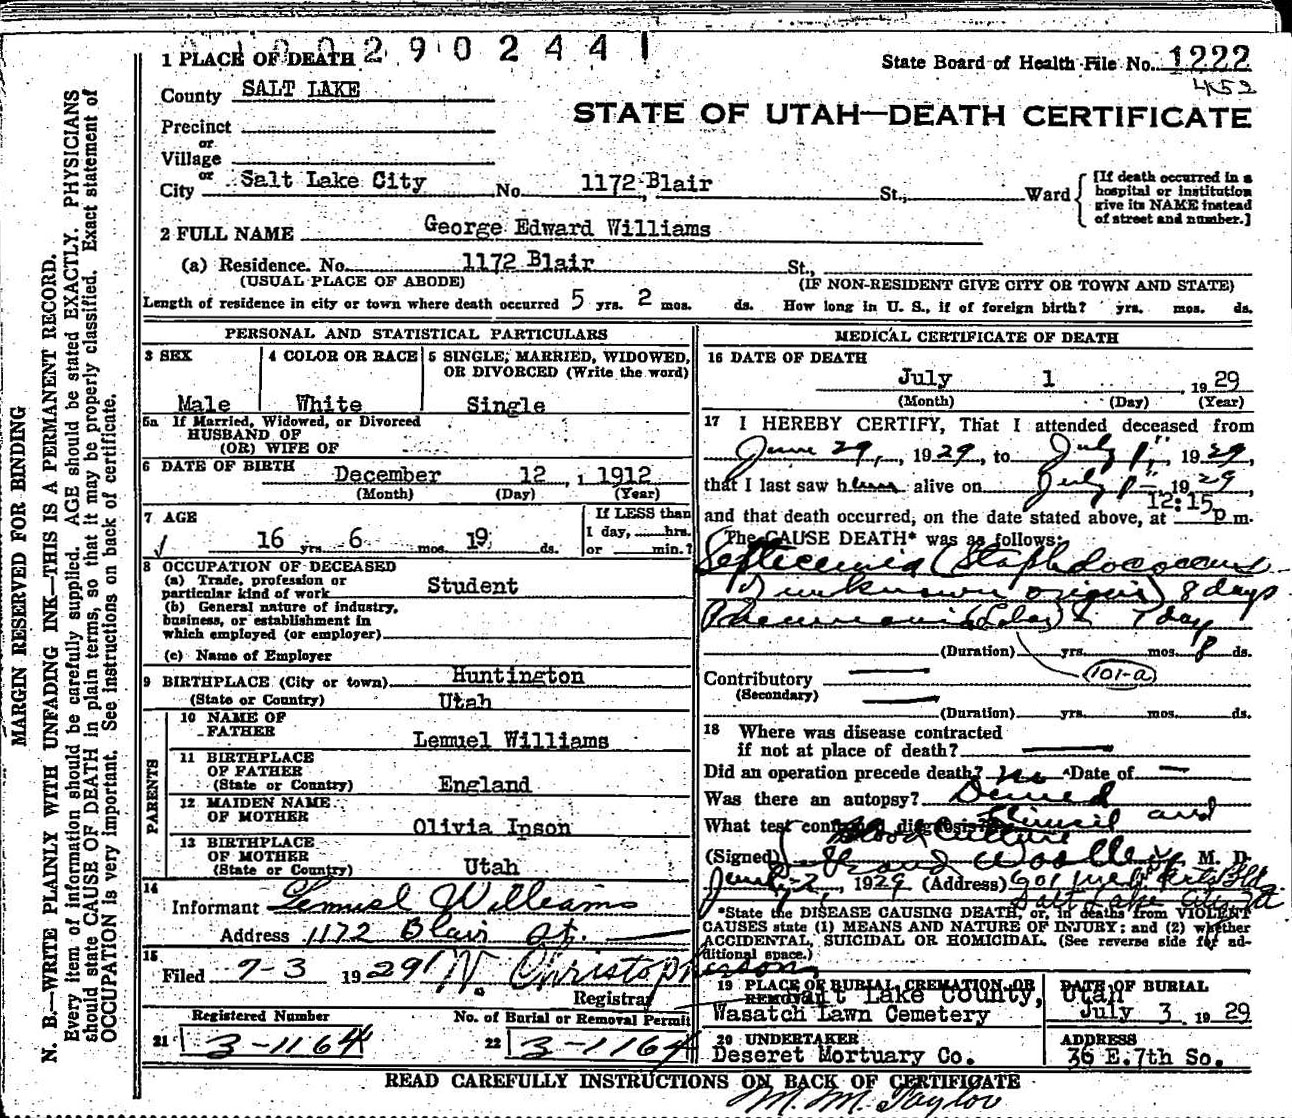 0100290244 1
1 PLACE OF DEATH
State Board of Health File No. 1222
452
County SALT LAKE
STATE OF UTAH—DEATH CERTIFICATE
Precinct
or
Village
or
City Salt Lake City No. 1172 Blair St., Ward
[If death occurred in a hospital or institution give its NAME instead of street and number.]
2 FULL NAME George Edward Williams
(a) Residence. No. 1172 Blair St.,
(USUAL PLACE OF ABODE) (IF NON-RESIDENT GIVE CITY OR TOWN AND STATE)
Length of residence in city or town where death occurred 5 yrs. 2 mos. ds. How long in U. S., if of foreign birth? yrs. mos. ds.
PERSONAL AND STATISTICAL PARTICULARS
3 SEX
Male
4 COLOR OR RACE
White
5 SINGLE, MARRIED, WIDOWED, OR DIVORCED (Write the word)
Single
5a If Married, Widowed, or Divorced
HUSBAND OF
(OR) WIFE OF
6 DATE OF BIRTH December 12, 1912
(Month) (Day) (Year)
7 AGE
16 yrs. 6 mos. 19 ds.
If LESS than
1 day, hrs.
or min.?
8 OCCUPATION OF DECEASED
(a) Trade, profession or
particular kind of work Student
(b) General nature of industry,
business, or establishment in
which employed (or employer)
(c) Name of Employer
9 BIRTHPLACE (City or town) Huntington
(State or Country) Utah
PARENTS
10 NAME OF
FATHER
Lemuel Williams
11 BIRTHPLACE
OF FATHER
(State or Country) England
12 MAIDEN NAME
OF MOTHER
Olivia Ipson
13 BIRTHPLACE
OF MOTHER
(State or Country) Utah
14
Informant Lemuel Williams
Address 1172 Blair St.
15
Filed 7-3 1929 W. Christopherson
Registrar
Registered Number
21 3-1164
No. of Burial or Removal Permit
22 3-1164
MEDICAL CERTIFICATE OF DEATH
16 DATE OF DEATH
July 1 1929
(Month) (Day) (Year)
17 I HEREBY CERTIFY, That I attended deceased from
June 29, 1929, to July 1, 1929,
that I last saw him alive on July 1 1929,
12:15
and that death occurred, on the date stated above, at p m.
The CAUSE DEATH* was as follows:
Septicemia (Staphlococcus
of unknown origin) 8 days
Pneumonia (Lobar) 7 day
(Duration) yrs. mos. 8 ds.
Contributory
(Secondary)
101-a
(Duration) yrs. mos. ds.
18 Where was disease contracted
if not at place of death?
Did an operation precede death? no Date of —
Was there an autopsy? Denied
What test confirmed diagnosis? Clinical and
Blood Culture
(Signed) Woolley Jr, M. D.
July 2, 1929 (Address) 901 Med. Arts Bldg
Salt Lake City
*State the DISEASE CAUSING DEATH, or, in deaths from VIOLENT
CAUSES state (1) MEANS AND NATURE OF INJURY; and (2) whether
ACCIDENTAL, SUICIDAL OR HOMICIDAL. (See reverse side for ad-
ditional space.)
19 PLACE OF BURIAL, CREMATION, OR
REMOVAL
Salt Lake County, Utah
Wasatch Lawn Cemetery
DATE OF BURIAL
July 3 1929
20 UNDERTAKER
Deseret Mortuary Co.
ADDRESS
36 E. 7th So.
READ CAREFULLY INSTRUCTIONS ON BACK OF CERTIFICATE
M. M. Taylor
MARGIN RESERVED FOR BINDING
N. B.—WRITE PLAINLY WITH UNFADING INK—THIS IS A PERMANENT RECORD.
Every item of information should be carefully supplied. AGE should be stated EXACTLY. PHYSICIANS
should state CAUSE OF DEATH in plain terms, so that it may be properly classified. Exact statement of
OCCUPATION is very important. See instructions on back of certificate.